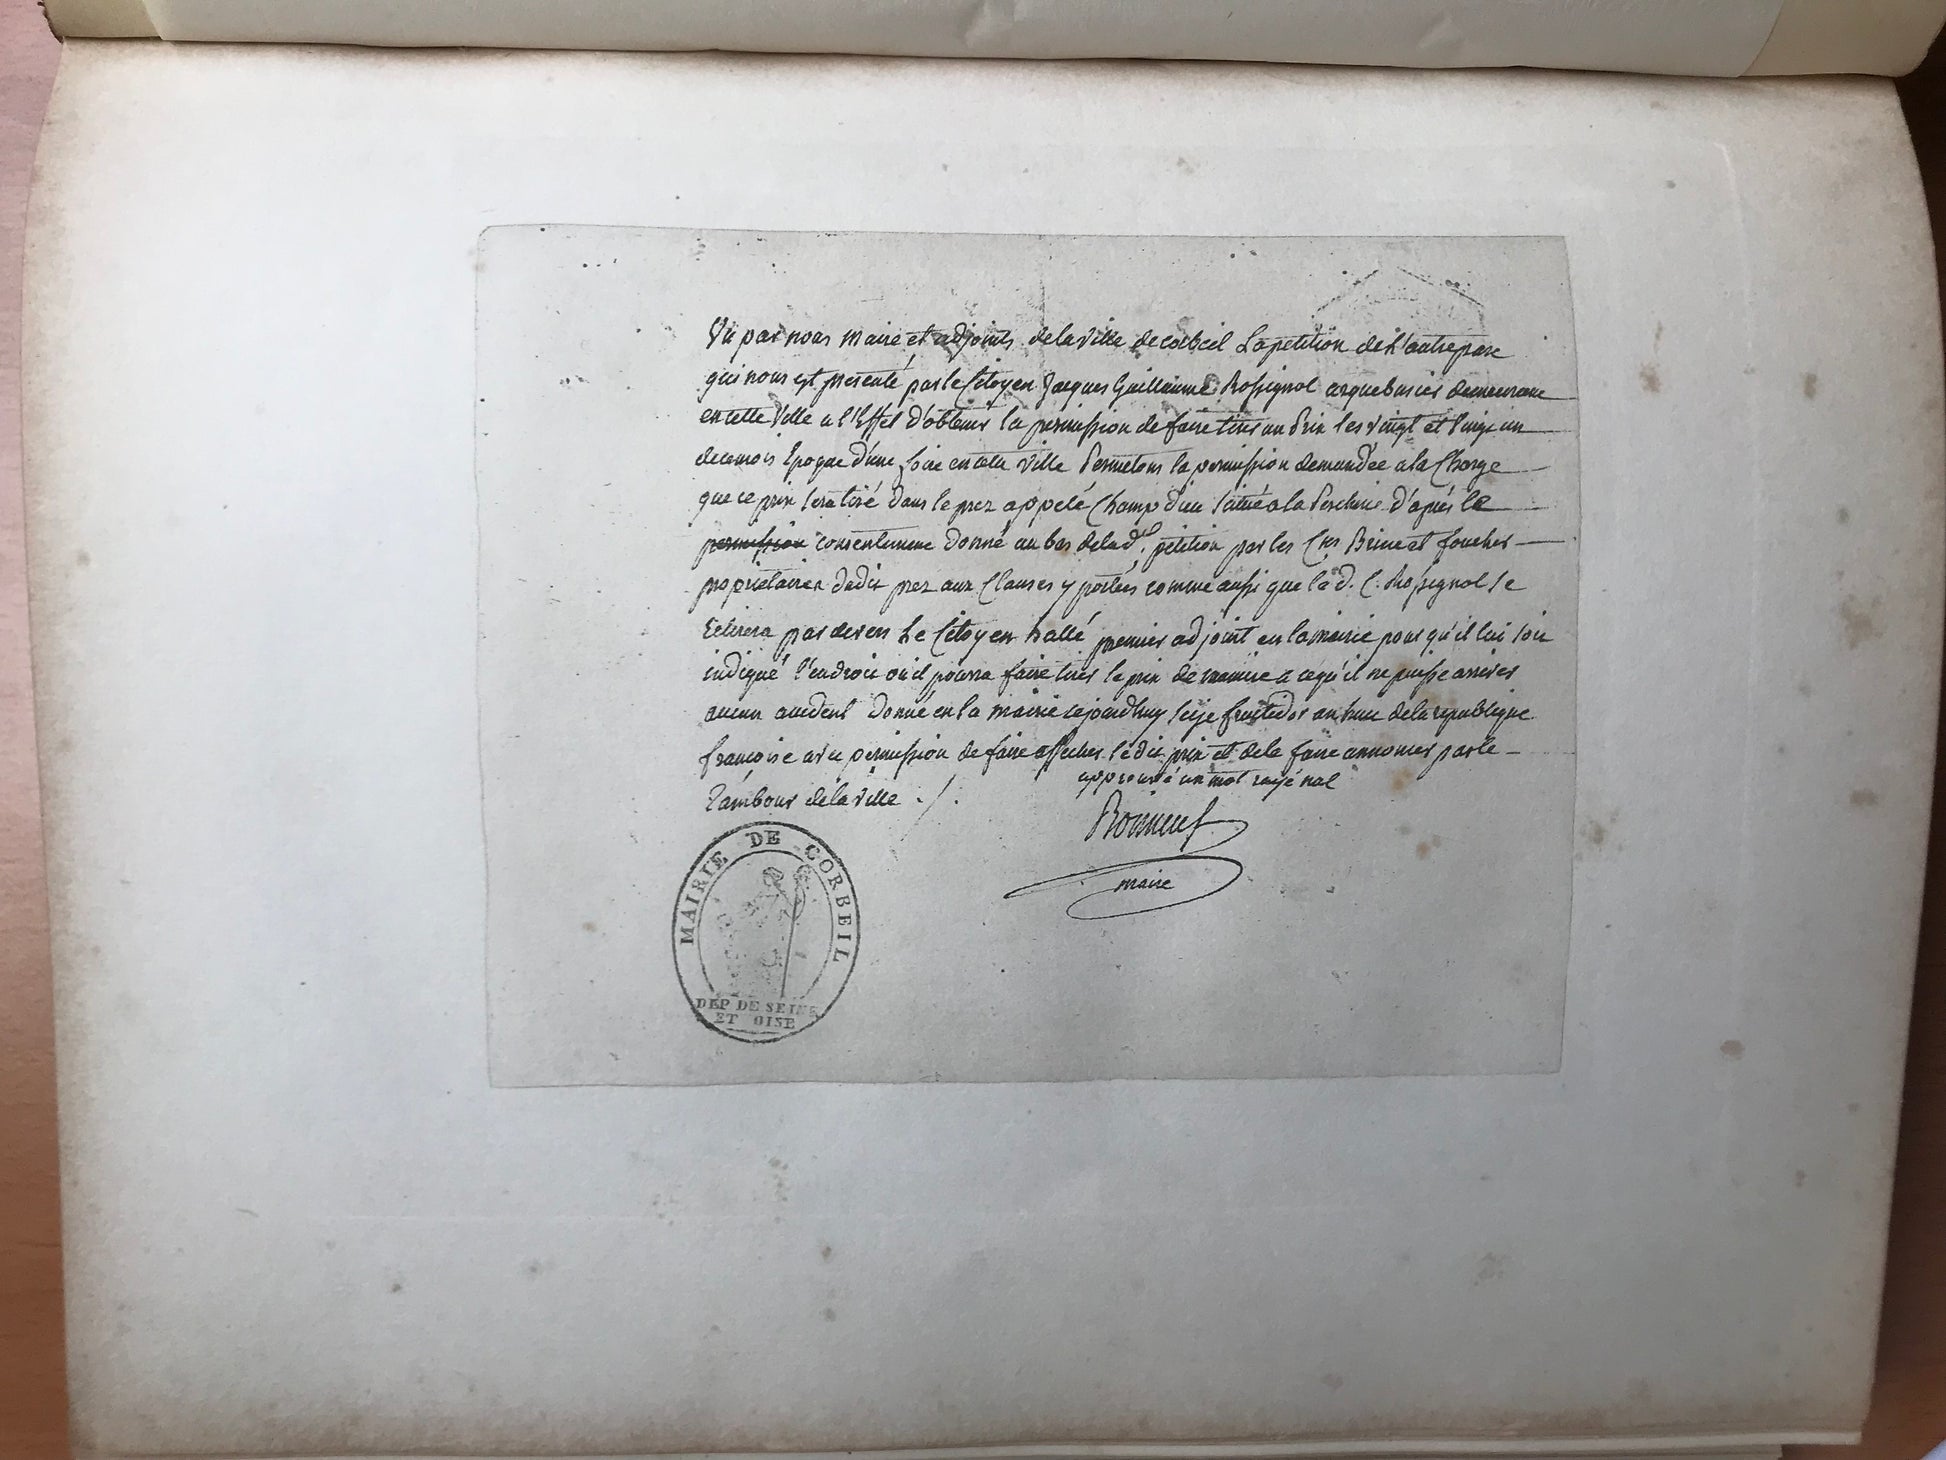 Vu par nous maire et adjoints de la ville de corbeil La petition de L'autre part
qui nous est presenté par le Citoyen Jacques Guillaume Rossignol arquebusier demeurant
en cette Ville a l'Effet d'obtenir la permission de faire tirer un Prix les vingt et Vingt un
de ce mois Epoque d'une foire en cette ville Permettons la permission demandée a la Charge
que ce prix sera tiré dans le prez appelé Champ d'ieu situé a la Pescherie d'après le
permission consentement donné au bas de lad.e petition par les C.ens et foucher
propriétaires dudit prez aux Clauses y portées comme aussi que le d. C. Rossignol se
retirera par devers Le Citoyen hallé premier adjoint en la mairie pour qu'il lui soit
indiqué l'endroit où il pourra faire tirer le prix de maniere a ce qu'il ne puisse arriver
aucun accident Donné en la mairie cejourdhuy seize fructidor an huit de la republique
françoise avec permission de faire afficher ledit prix et de le faire annoncer par le
Tambour de la ville ./.
approuvé un mot rayé nul
maire
MAIRIE DE CORBEIL
DEP DE SEINE
ET OISE